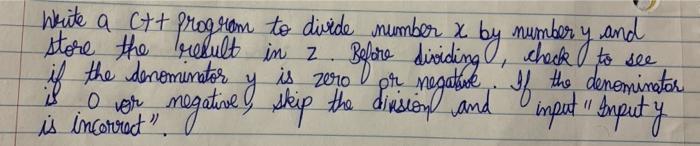 Write a C++ program to divide number x by number y and
store the result in z. Before dividing, check to see
if the denominator y is zero or negative. If the denominator
is 0 or negative, skip the division and input "Input y
is incorrect".